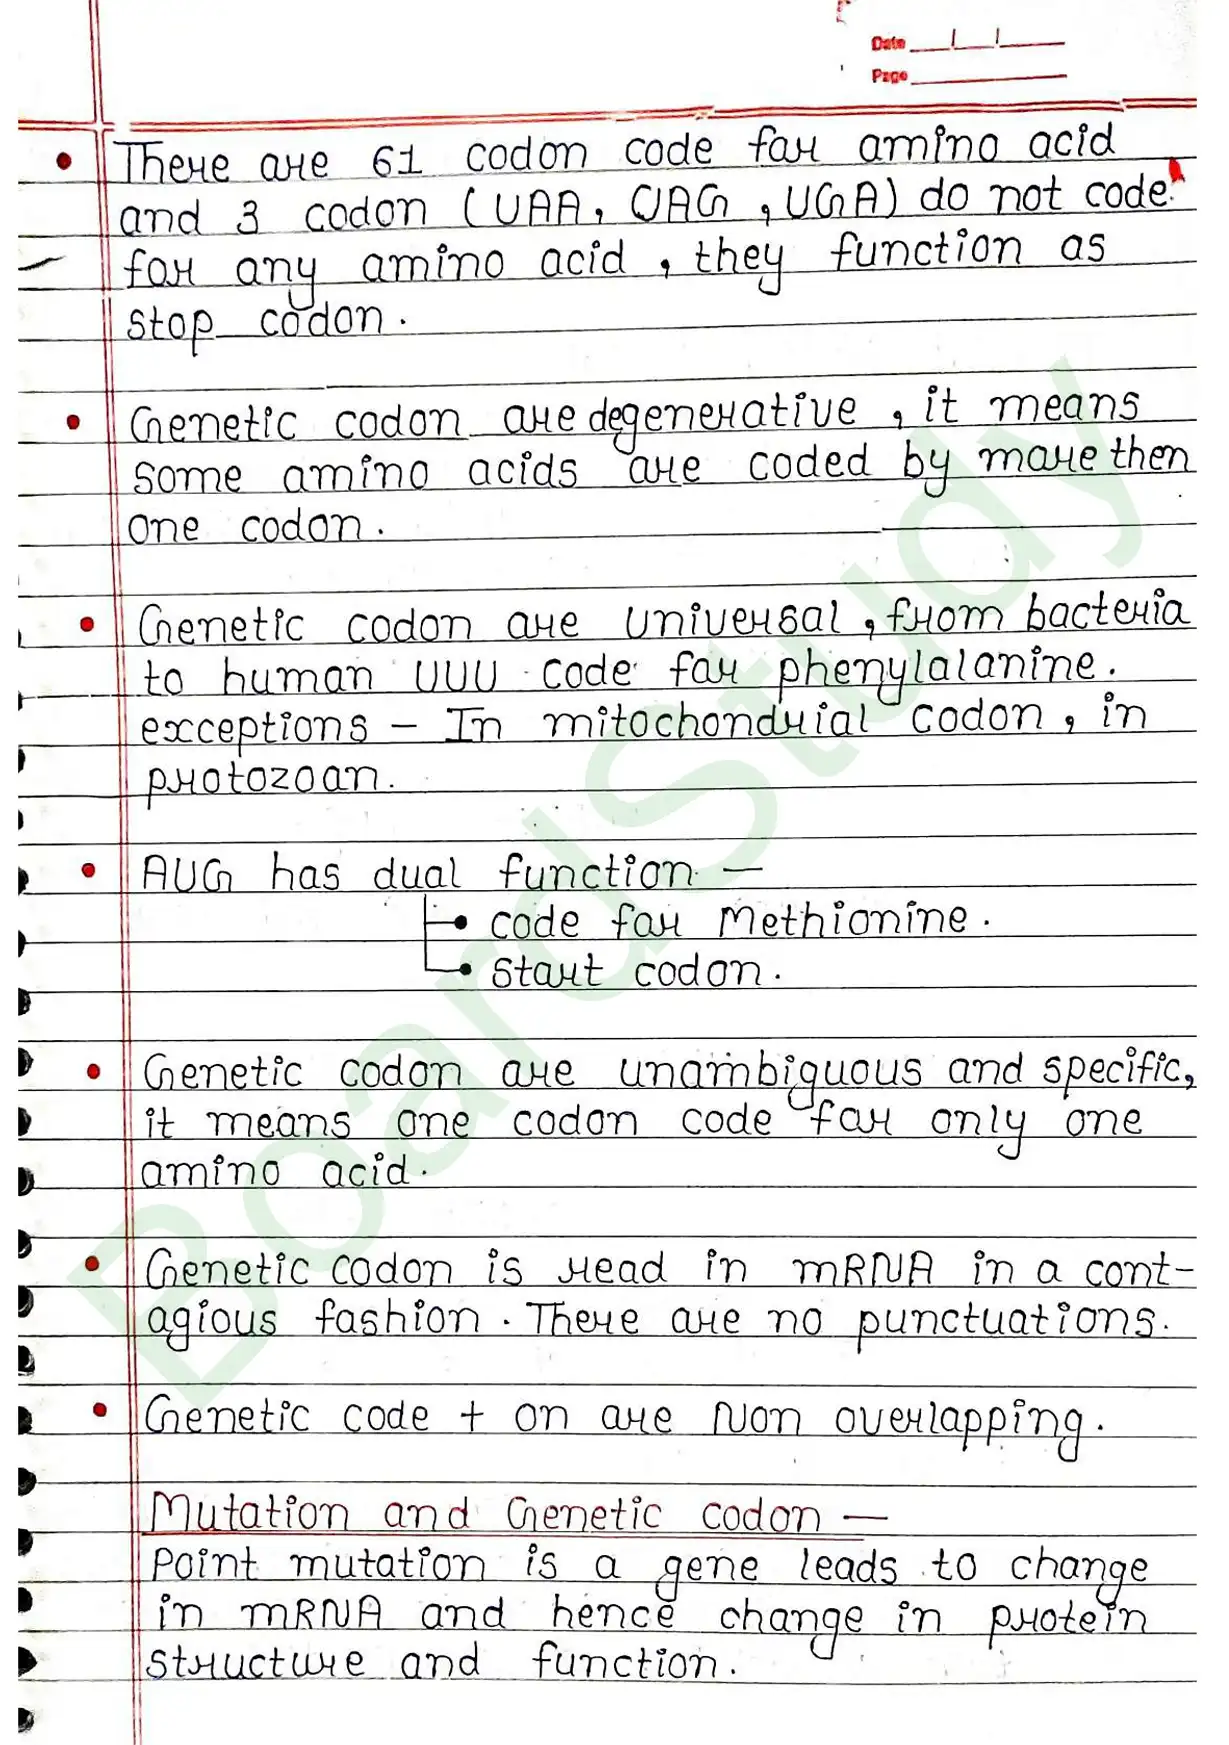 Date
Page
There are 61 codon code for amino acid
and 3 codon (UAA, UAG, UGA) do not code
for any amino acid, they function as
stop codon.
Genetic codon are degenerative, it means
some amino acids are coded by more then
one codon.
Genetic codon are universal, from bacteria
to human UUU code for phenylalanine.
exceptions - In mitochondrial codon, in
protozoan.
AUG has dual function —
code for Methionine.
start codon.
Genetic codon are unambiguous and specific,
it means one codon code for only one
amino acid.
Genetic codon is read in mRNA in a cont-
agious fashion. There are no punctuations.
Genetic code + on are Non overlapping.
Mutation and Genetic codon —
Point mutation is a gene leads to change
in mRNA and hence change in protein
structure and function.
BoardStudy